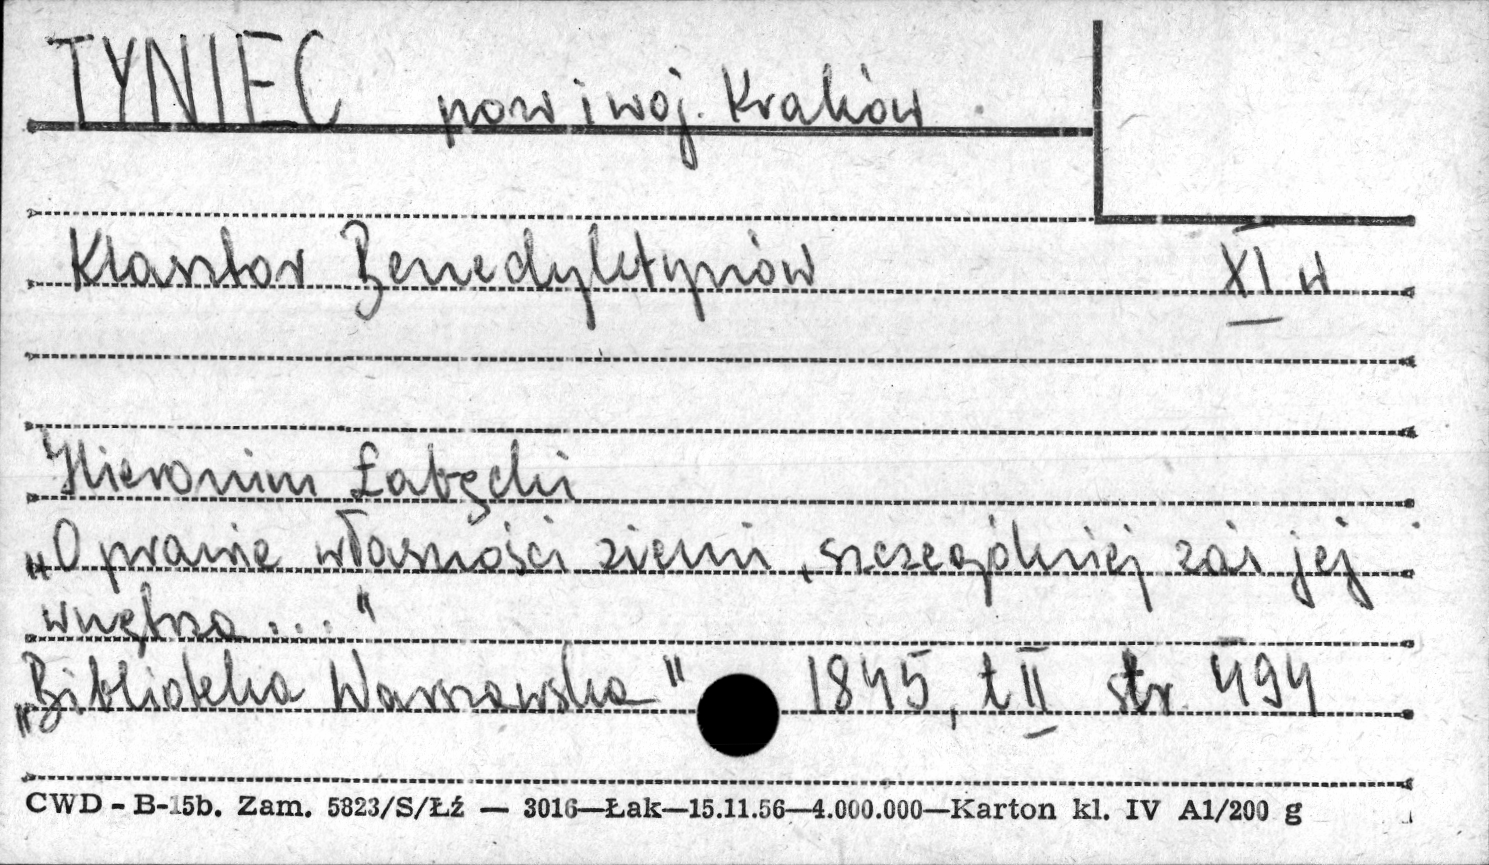 TYNIEC pow i woj. Kraków
Klasztor Benedyktynów XI w
Hieronim Łabęcki
„O prawie własności ziemi, szczególniej zaś jej
wnętrza ..."
„Biblioteka Warszawska" 1845, t II str. 494
CWD - B-15b. Zam. 5823/S/Łź — 3016—Łak—15.11.56—4.000.000—Karton kl. IV A1/200 g